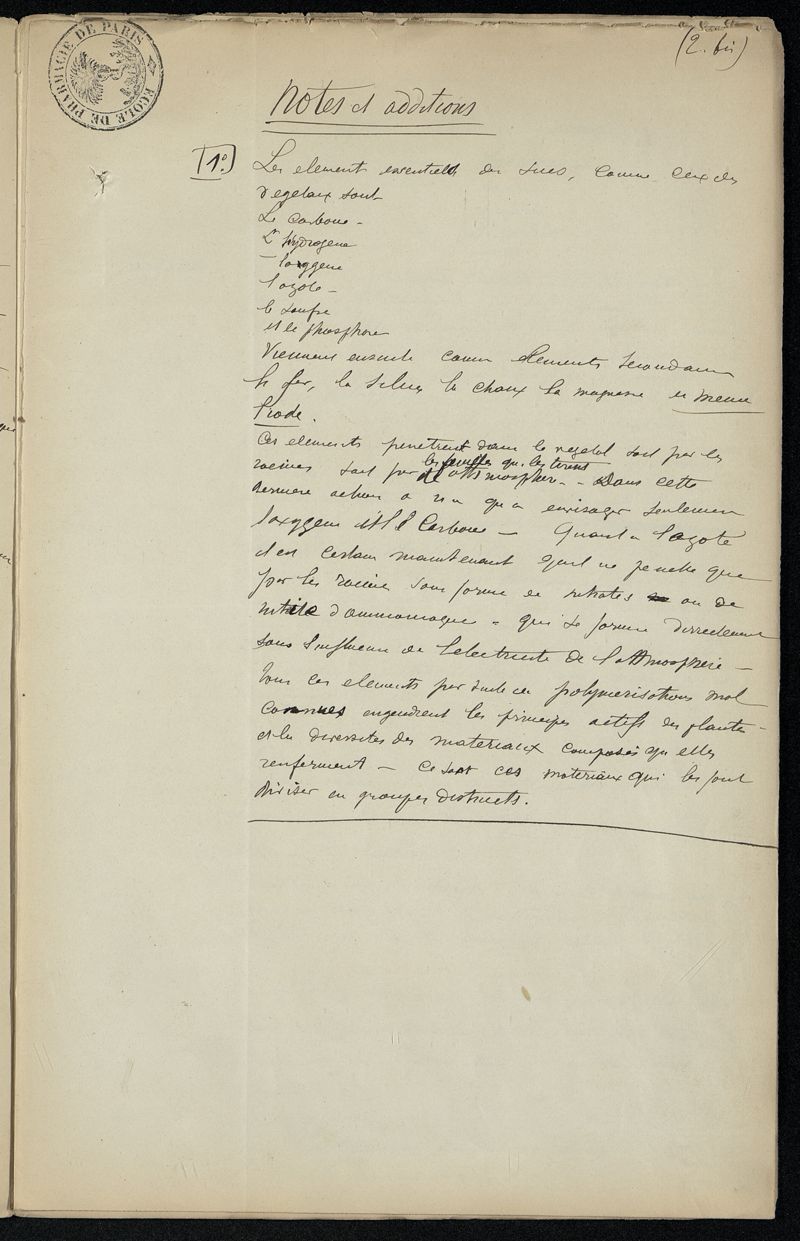 (2. bis)
ECOLE DE PHARMACIE DE PARIS
Notes et additions
1º) Les element essentiels des sucs, comme ceux des
vegetaux sont
Le carbone -
L'hydrogene
- l'oxygene
l'azote -
le soufre
et le phosphore
Viennent ensuite comme elements secondaires
le fer, la silice la chaux la magnesie et meme
l'iode.
Ces elements penetrent dans le vegetal soit par les
les feuilles qui les tirent
racines soit par de l'attmosphere - Dans cette
derniere action a envisager seulement
l'oxygene et le Carbone - Quant a l'azote
il est certain maintenant qu'il ne penetre que
par les racines sous forme de nitrates ou de
nitrite d'ammoniaque - qui se forme directement
sous l'influence de l'electricite de l'attmosphere -
Tous ces elements par suite de polymerisations mal
connues engendrent les principes actifs des plantes -
et la diversites des materiaux composés qu'elles
renferment - ce sont ces materiaux qui les font
diviser en groupes distincts.